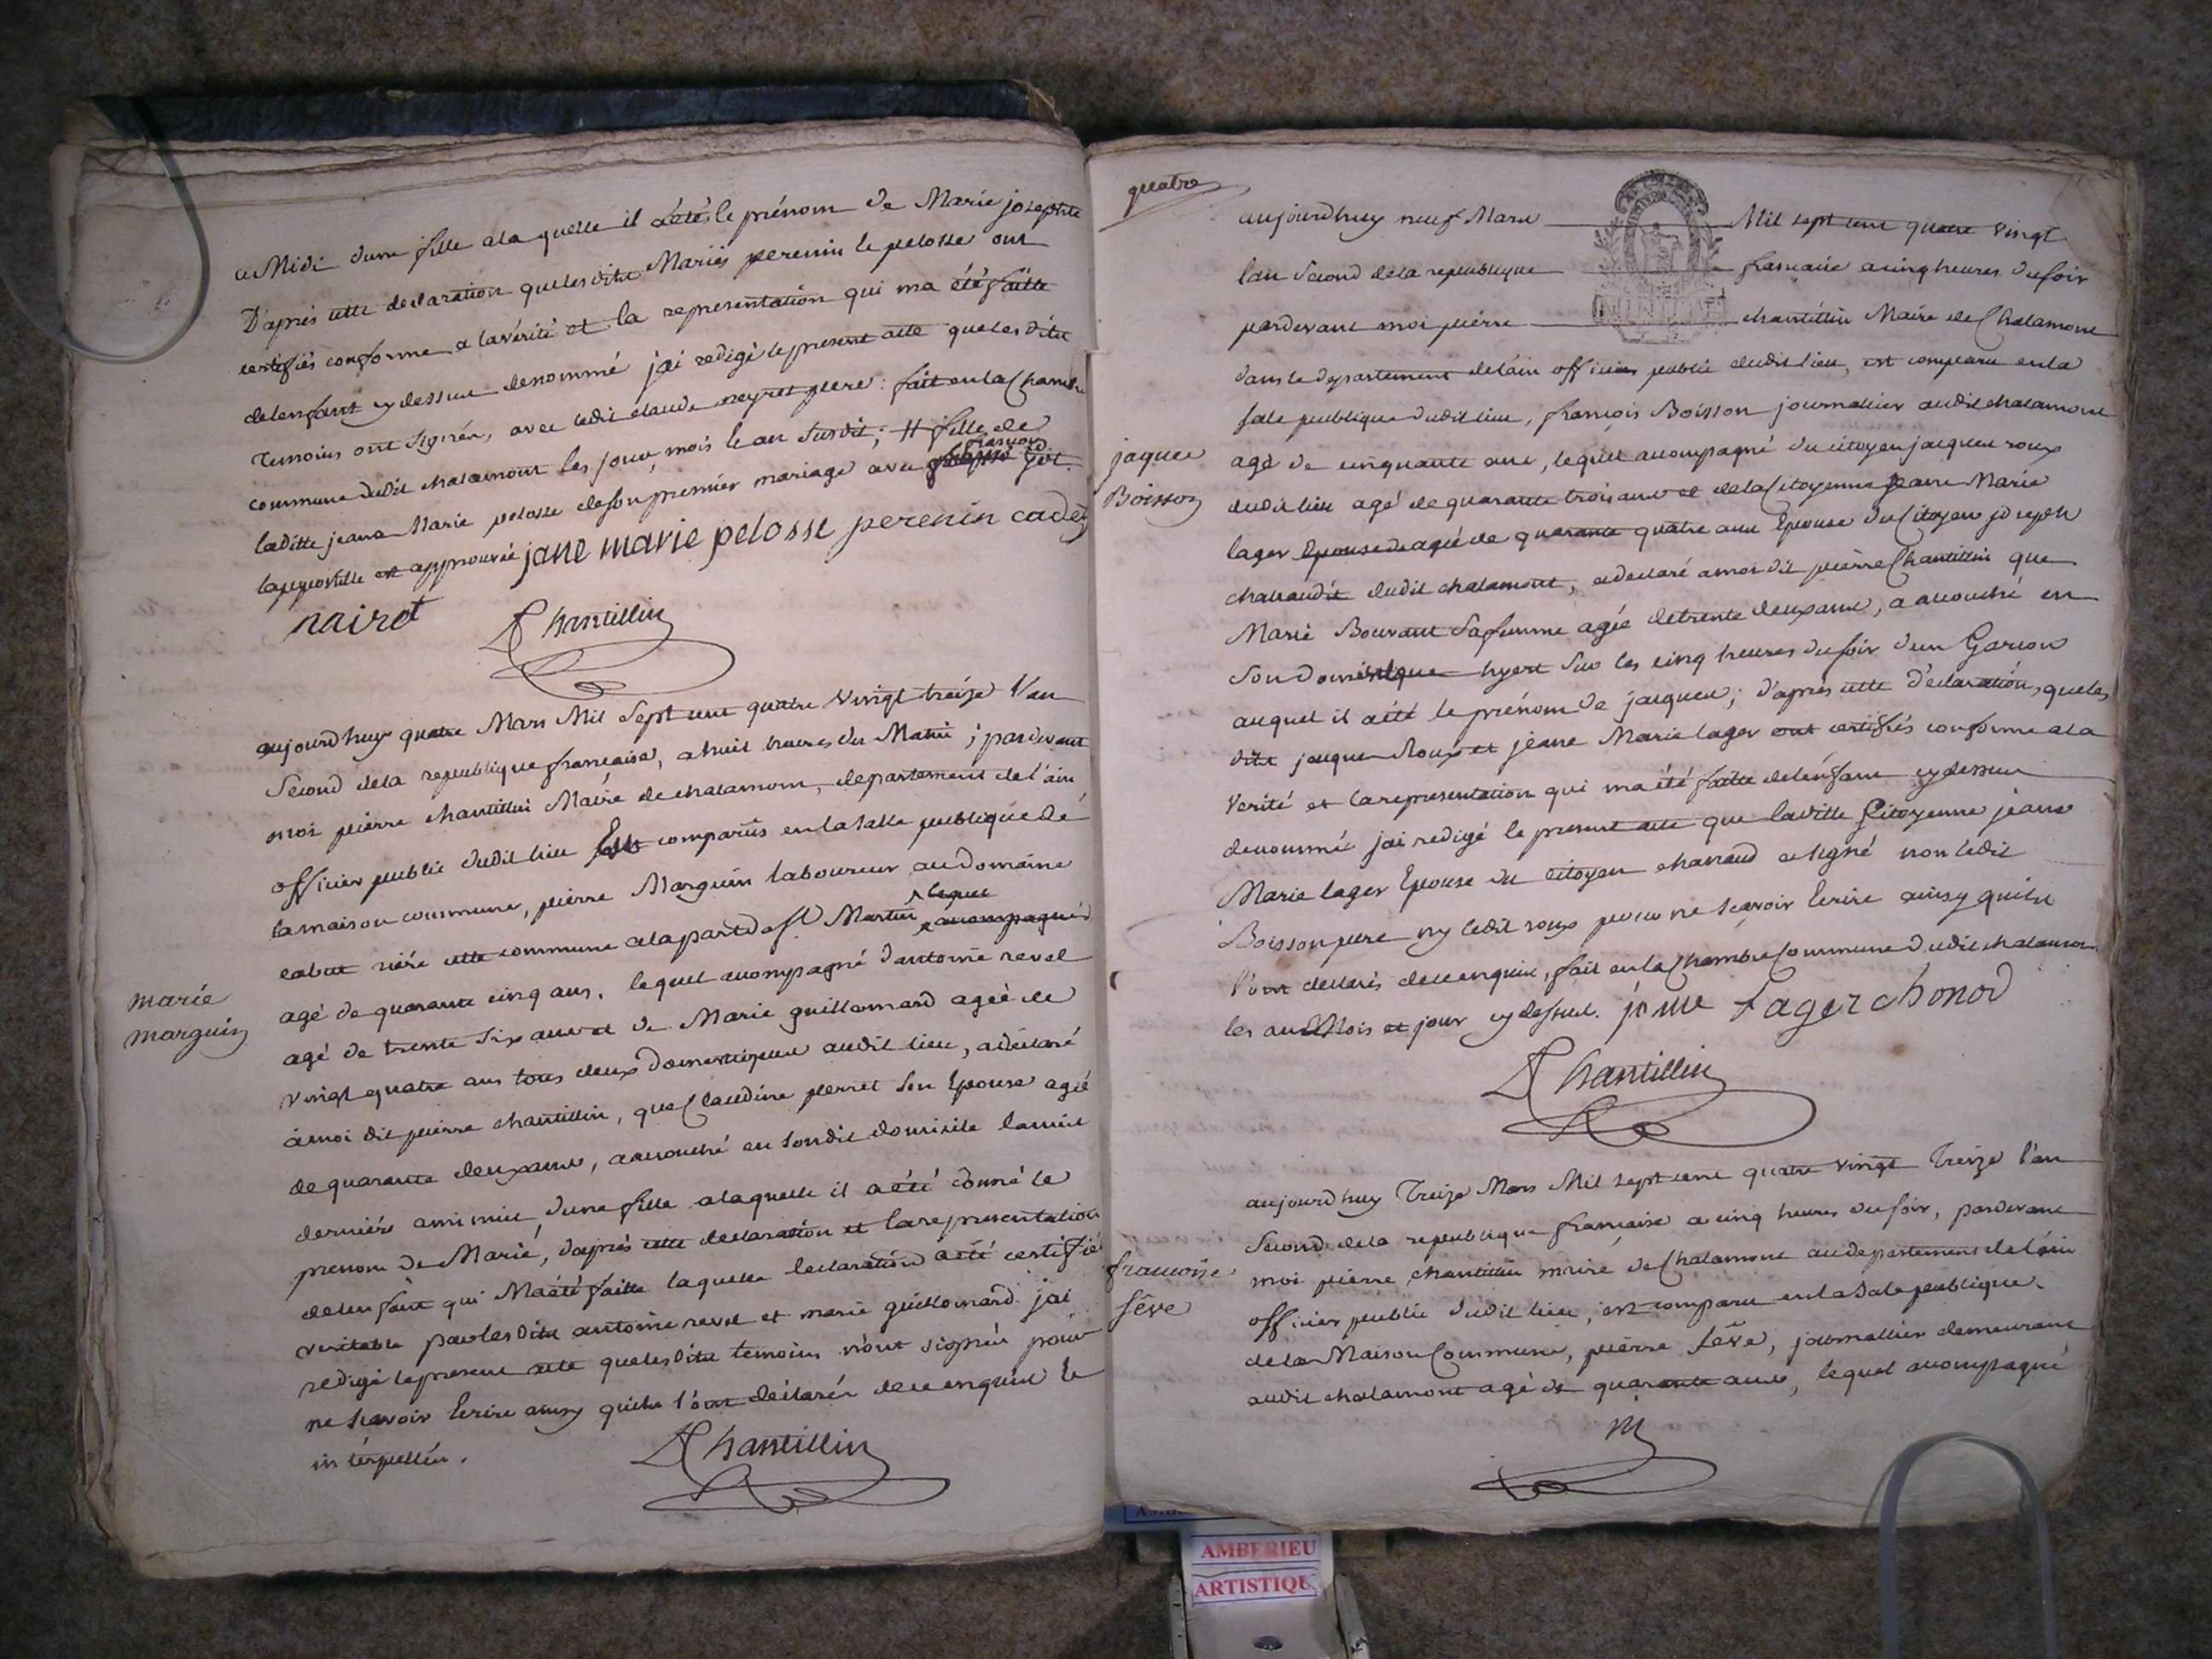 a Midi d'une fille a la quelle il a été le prénom de Marie josephte
D'apres cette declaration que lesdits Mariés perenin le pelosse ont
certifiés conforme a la vérité et la representation qui ma été faitte
de lenfant cy dessus denommé jai redigé le present acte que lesdits
temoins ont signés, avec ledit claude neyret pere : fait en la Chambre
commune dudit chalamont les jour, mois le an susdit; # fille de
laditte jeane Marie pelosse de son premier mariage avec françois
lappostille est approuvée jane marie pelosse perenin cadey
nairet Chantillin
aujourdhuy quatre Mars Mil Sept cent quatre vingt treize l'an
Second de la republique francaise, a huit heures du Matin ; pardevant
moi pierre chantillin Maire de chalamont, departement de l'ain
officier public dudit lieu Est comparus en la salle publique de
la maison commune, pierre Marguin laboureur au domaine
cabut riére cette commune a la part de St Martin lequel accompagné
marie
marguin
agé de quarante cinq ans, lequel accompagné dantoine revel
agé de trente six ans et de Marie guillomard ageé de
vingt quatre ans tous deux domestiques audit lieu, a déclaré
a moi dit pierre chantillin, que Claudine perret son Epouse agé
de quarante deux ans, a accouché en sondit domicile la nuit
derniére a mi nuit, d'une fille a laquelle il a été donné le
prenom de Marie, d'aprés cette declaration et la representation
de lenfant qui Ma été faitte laquelle declaration a été certifié
veritable par lesdits antoine revel et marie guillomard jai
redigé le present acte que lesdits temoins n'ont signés pour
ne scavoir Ecrire ainsy quils l'ont déclarés de ce enquis et
intérpellés.
Chantillin
quatre
aujourdhuy neuf Mars Mil sept cent quatre vingt
lan Second de la republique francaise a cinq heures du soir
pardevant moi pierre chantillin Maire de Chalamont
dans le departement de lain officier public dudit lieu, est comparu en la
sale publique dudit lieu, françois Boisson journalier audit chalamont
jaques
Boisson
agé de cinquante ans, lequel accompagné du citoyen jacques roux
dudit lieu agé de quarante trois ans et de la Citoyenne jeane Marie
lager Epouse de agée de quarante quatre ans Epouse du Citoyen joseph
dudit chalamont, a declaré a moi dit pierre Chantillin que
Marie Bouvant sa femme agée de trente deux ans, a accouché en
Son hyert sur les cinq heures du soir d'un Garcon
auquel il a été le prénom de jacques; d'aprés cette declaration, que les
dits jacques Roux et jeane Marie lager ont certifiés conforme a la
Verité et la representation qui ma été faitte de lénfant cy dessus
denommé jai redigé le present acte que laditte Citoyenne jeane
Marie lager Epouse du citoyen a signé non ledit
Boisson pere ny ledit roux pour ne scavoir Ecrire ainsy quils
l'ont declarés de ce enquis, fait en la Chambre Commune dudit chalamon
les an Mois et jour cy dessus. lager chonod
Chantillin
aujourdhuy Treize Mars Mil sept cent quatre vingt Treize l'an
Second de la republique francaise a cinq heures du soir, pardevant
francoise
sêve
moi pierre chantillin maire de Chalamont au departement de l'ain
officier public dudit lieu, est comparu en la Sale publique
de la Maison Commune, pierre sêve, journallier demeurant
audit chalamont agé de quarante ans, lequel accompagné
AMBERIEU
ARTISTIQU